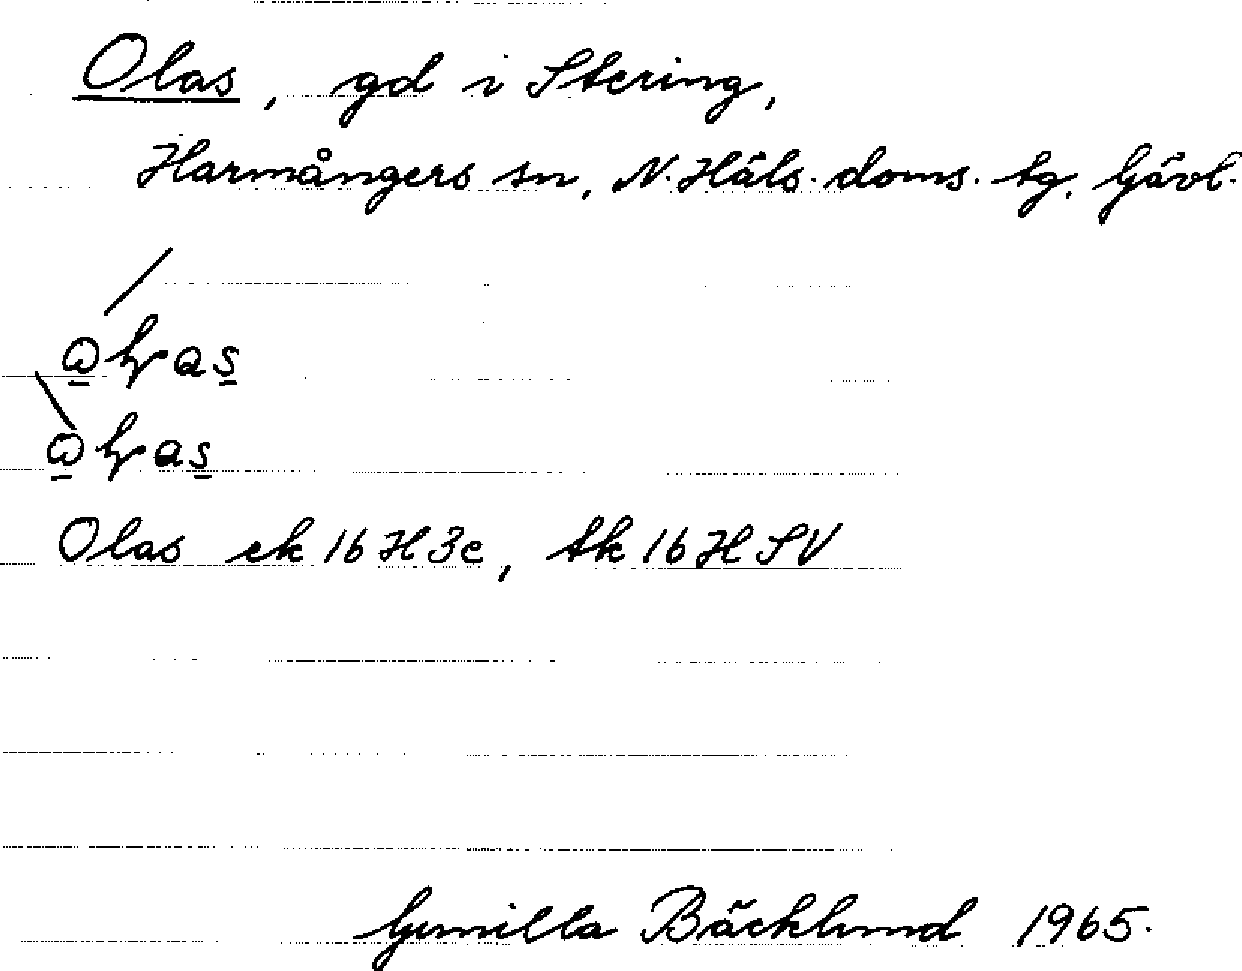 Olas, gd i Stering,
Harmångers sn, N. Häls. doms. tg, Gävl.
Olas ek 16H3e, tk 16HSV
Gunilla Bäcklund 1965.